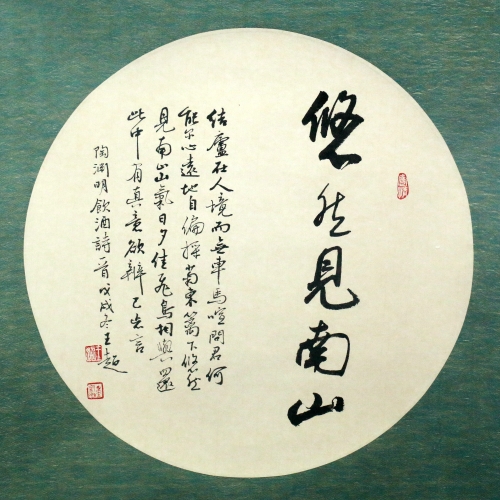 悠然見南山
結廬在人境而無車馬喧問君何
能尔心遠地自偏採菊東籬下悠然
見南山山氣日夕佳飛鳥相與還
此中有真意欲辨已忘言
陶淵明飲酒詩一首戊戌冬王超